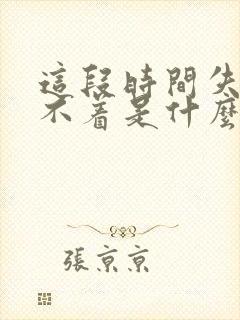 這段時間失
不着是什麼
張京京